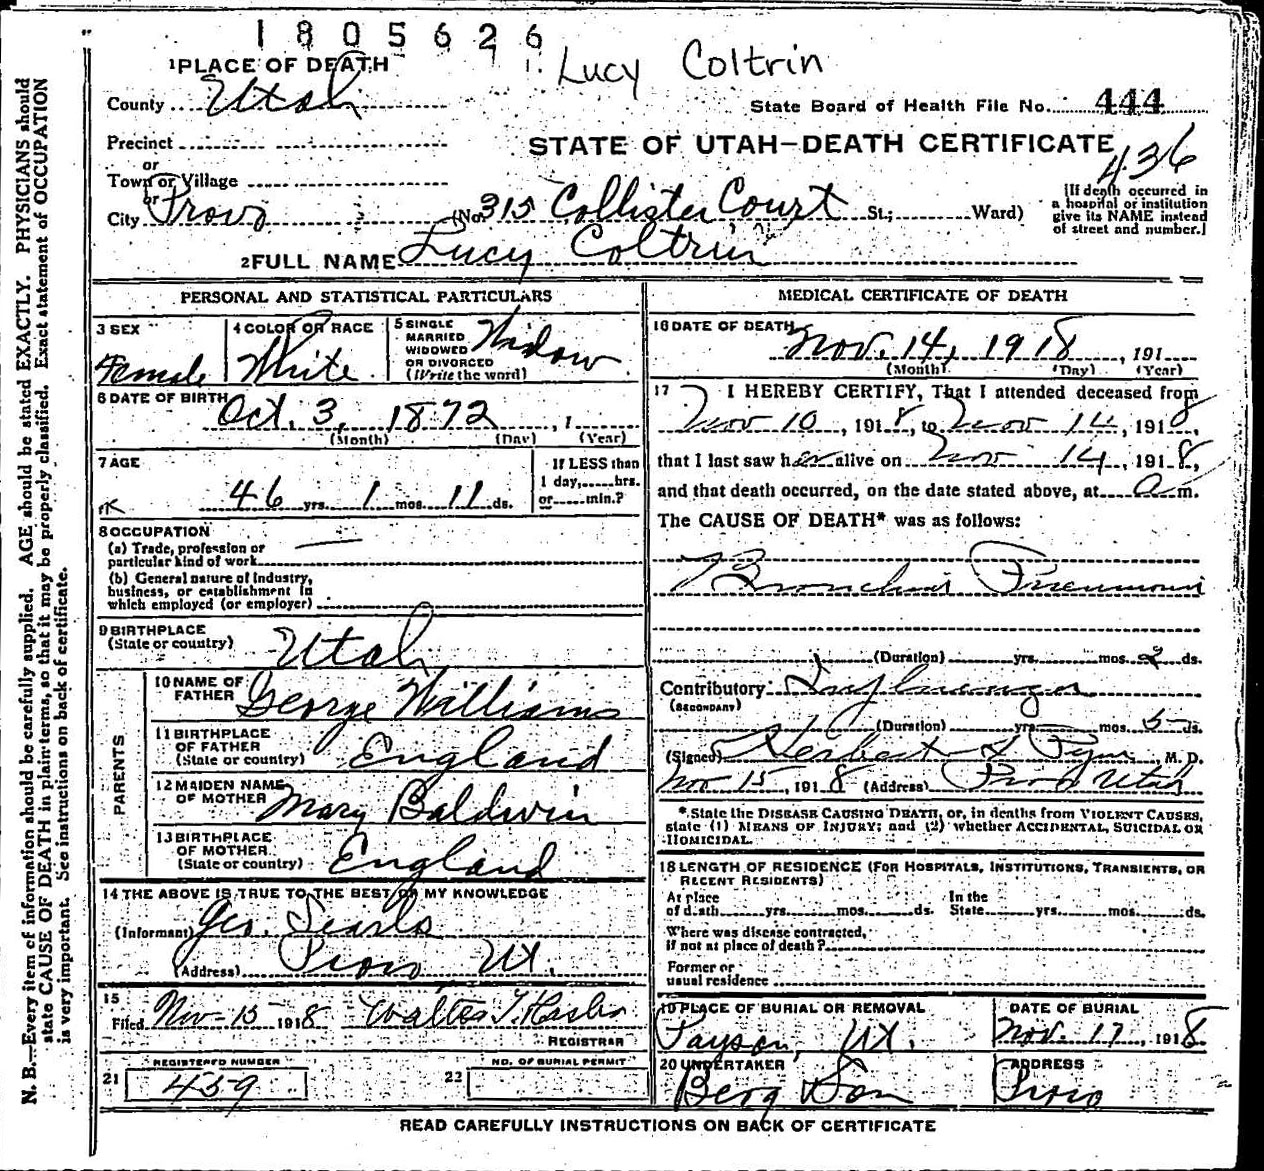 1805626
Lucy Coltrin
1 PLACE OF DEATH
County Utah
State Board of Health File No. 444
Precinct
STATE OF UTAH—DEATH CERTIFICATE
436
or
Town or Village
or
City Provo (No. 315 Collister Court St.; Ward)
[If death occurred in
a hospital or institution
give its NAME instead
of street and number.]
2 FULL NAME Lucy Coltrin
PERSONAL AND STATISTICAL PARTICULARS
3 SEX
Female
4 COLOR OR RACE
White
5 SINGLE
MARRIED
WIDOWED
OR DIVORCED
(Write the word)
Widow
6 DATE OF BIRTH
Oct. 3, 1872, 1
(Month) (Day) (Year)
7 AGE
46 yrs. 1 mos. 11 ds.
If LESS than
1 day, hrs.
or min.?
8 OCCUPATION
(a) Trade, profession or
particular kind of work
(b) General nature of Industry,
business, or establishment in
which employed (or employer)
9 BIRTHPLACE
(State or country)
Utah
PARENTS
10 NAME OF
FATHER
George Williams
11 BIRTHPLACE
OF FATHER
(State or country)
England
12 MAIDEN NAME
OF MOTHER
Mary Baldwin
13 BIRTHPLACE
OF MOTHER
(State or country)
England
14 THE ABOVE IS TRUE TO THE BEST OF MY KNOWLEDGE
(Informant) Geo. Searls
(Address) Provo, Ut.
15
Filed Nov-15 1918 Walter T. Hasler
REGISTRAR
REGISTERED NUMBER
21 459
NO. OF BURIAL PERMIT
22
MEDICAL CERTIFICATE OF DEATH
16 DATE OF DEATH
Nov. 14, 1918, 191
(Month) (Day) (Year)
17 I HEREBY CERTIFY, That I attended deceased from
Nov 10, 1918, to Nov 14, 1918,
that I last saw her alive on Nov 14, 1918,
and that death occurred, on the date stated above, at a m.
The CAUSE OF DEATH* was as follows:
Bronchial Pneumonia
(Duration) yrs. mos. 2 ds.
Contributory Influenza
(SECONDARY)
(Duration) yrs. mos. 5 ds.
(Signed) Herbert S Pyne, M. D.
Nov 15, 1918 (Address) Provo Utah
*State the DISEASE CAUSING DEATH, or, in deaths from VIOLENT CAUSES,
state (1) MEANS OF INJURY; and (2) whether ACCIDENTAL, SUICIDAL OR
HOMICIDAL.
18 LENGTH OF RESIDENCE (FOR HOSPITALS, INSTITUTIONS, TRANSIENTS, OR
RECENT RESIDENTS)
At place
of death yrs. mos. ds.
In the
State yrs. mos. ds.
Where was disease contracted,
if not at place of death?
Former or
usual residence
19 PLACE OF BURIAL OR REMOVAL
Payson, Ut.
DATE OF BURIAL
Nov. 17, 1918
20 UNDERTAKER
Berg Son
ADDRESS
Provo
READ CAREFULLY INSTRUCTIONS ON BACK OF CERTIFICATE
N. B.—Every item of information should be carefully supplied. AGE should be stated EXACTLY. PHYSICIANS should
state CAUSE OF DEATH in plain terms, so that it may be properly classified. Exact statement of OCCUPATION
is very important. See instructions on back of certificate.